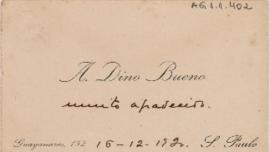 AG 1.1.402
A. Dino Bueno
muito agradecido.
Guayanazes, 152 16-12-1920 S. Paulo